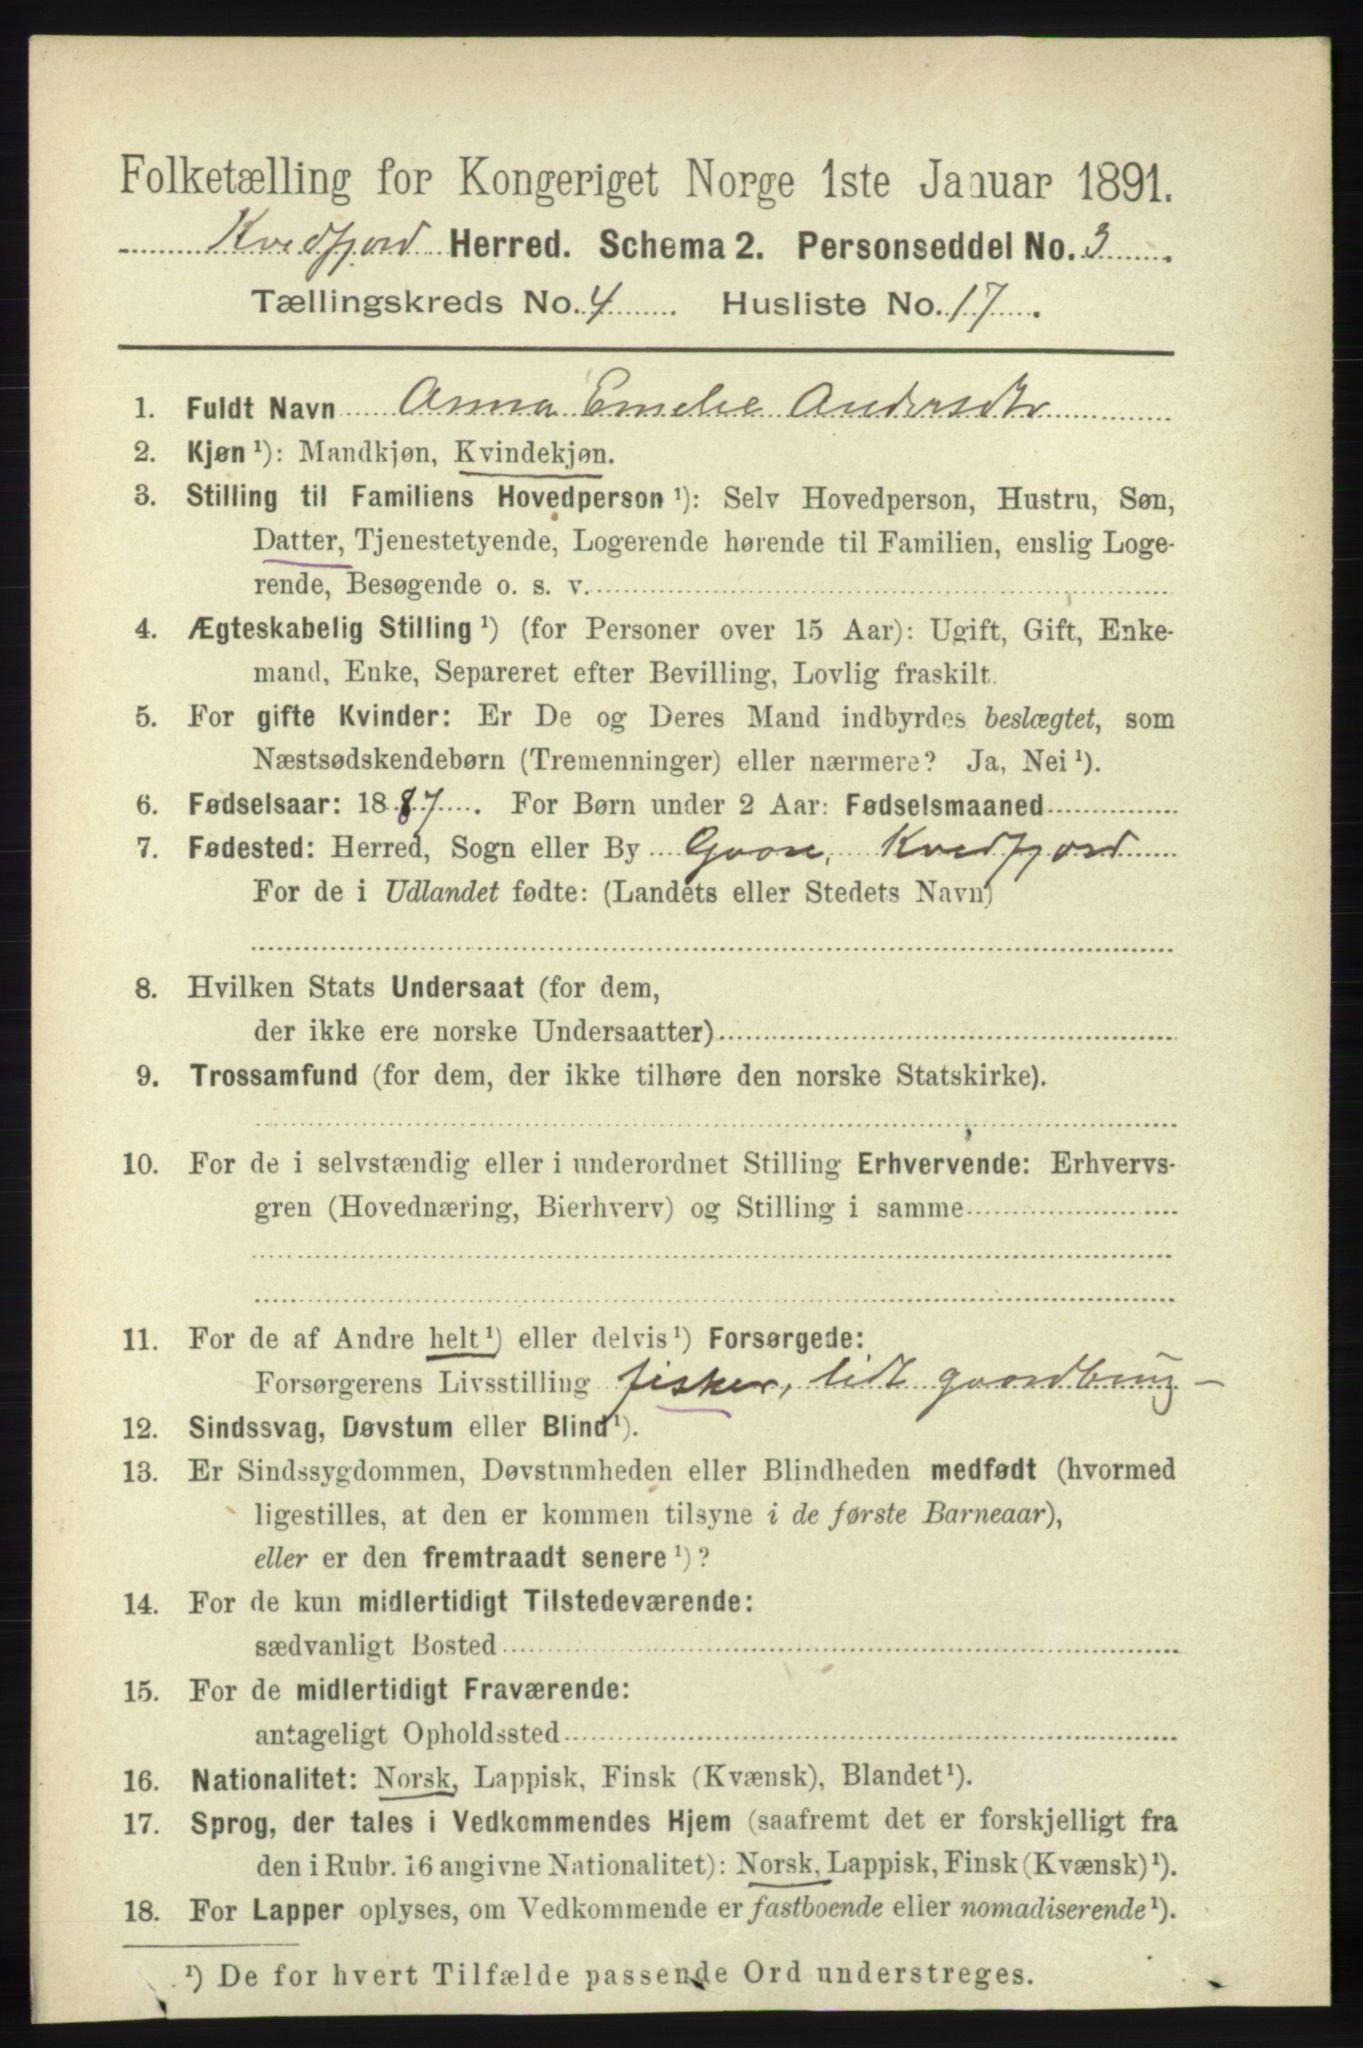 Folketælling for Kongeriget Norge 1ste Januar 1891.
Kvedfjord Herred. Schema 2. Personseddel No. 3.
Tællingskreds No. 4. Husliste No. 17.
1. Fuldt Navn Anna Emelie Andersdtr
2. Kjøn¹): Mandkjøn, Kvindekjøn.
3. Stilling til Familiens Hovedperson¹): Selv Hovedperson, Hustru, Søn,
Datter, Tjenestetyende, Logerende hørende til Familien, enslig Loge-
rende, Besøgende o. s. v.
4. Ægteskabelig Stilling¹) (for Personer over 15 Aar): Ugift, Gift, Enke-
mand, Enke, Separeret efter Bevilling, Lovlig fraskilt.
5. For gifte Kvinder: Er De og Deres Mand indbyrdes beslægtet, som
Næstsødskendebørn (Tremenninger) eller nærmere? Ja, Nei¹).
6. Fødselsaar: 1887. For Børn under 2 Aar: Fødselsmaaned
7. Fødested: Herred, Sogn eller By Kvedfjord
For de i Udlandet fødte: (Landets eller Stedets Navn)
8. Hvilken Stats Undersaat (for dem,
der ikke ere norske Undersaatter)
9. Trossamfund (for dem, der ikke tilhøre den norske Statskirke).
10. For de i selvstændig eller i underordnet Stilling Erhvervende: Erhvervs-
gren (Hovednæring, Bierhverv) og Stilling i samme
11. For de af Andre helt¹) eller delvis¹) Forsørgede:
Forsørgerens Livsstilling fisker, lidt gaardbrug
12. Sindssvag, Døvstum eller Blind¹).
13. Er Sindssygdommen, Døvstumheden eller Blindheden medfødt (hvormed
ligestilles, at den er kommen tilsyne i de første Barneaar),
eller er den fremtraadt senere¹)?
14. For de kun midlertidigt Tilstedeværende:
sædvanligt Bosted
15. For de midlertidigt Fraværende:
antageligt Opholdssted
16. Nationalitet: Norsk, Lappisk, Finsk (Kvænsk), Blandet¹).
17. Sprog, der tales i Vedkommendes Hjem (saafremt det er forskjelligt fra
den i Rubr. 16 angivne Nationalitet): Norsk, Lappisk, Finsk (Kvænsk)¹).
18. For Lapper oplyses, om Vedkommende er fastboende eller nomadiserende¹).
¹) De for hvert Tilfælde passende Ord understreges.